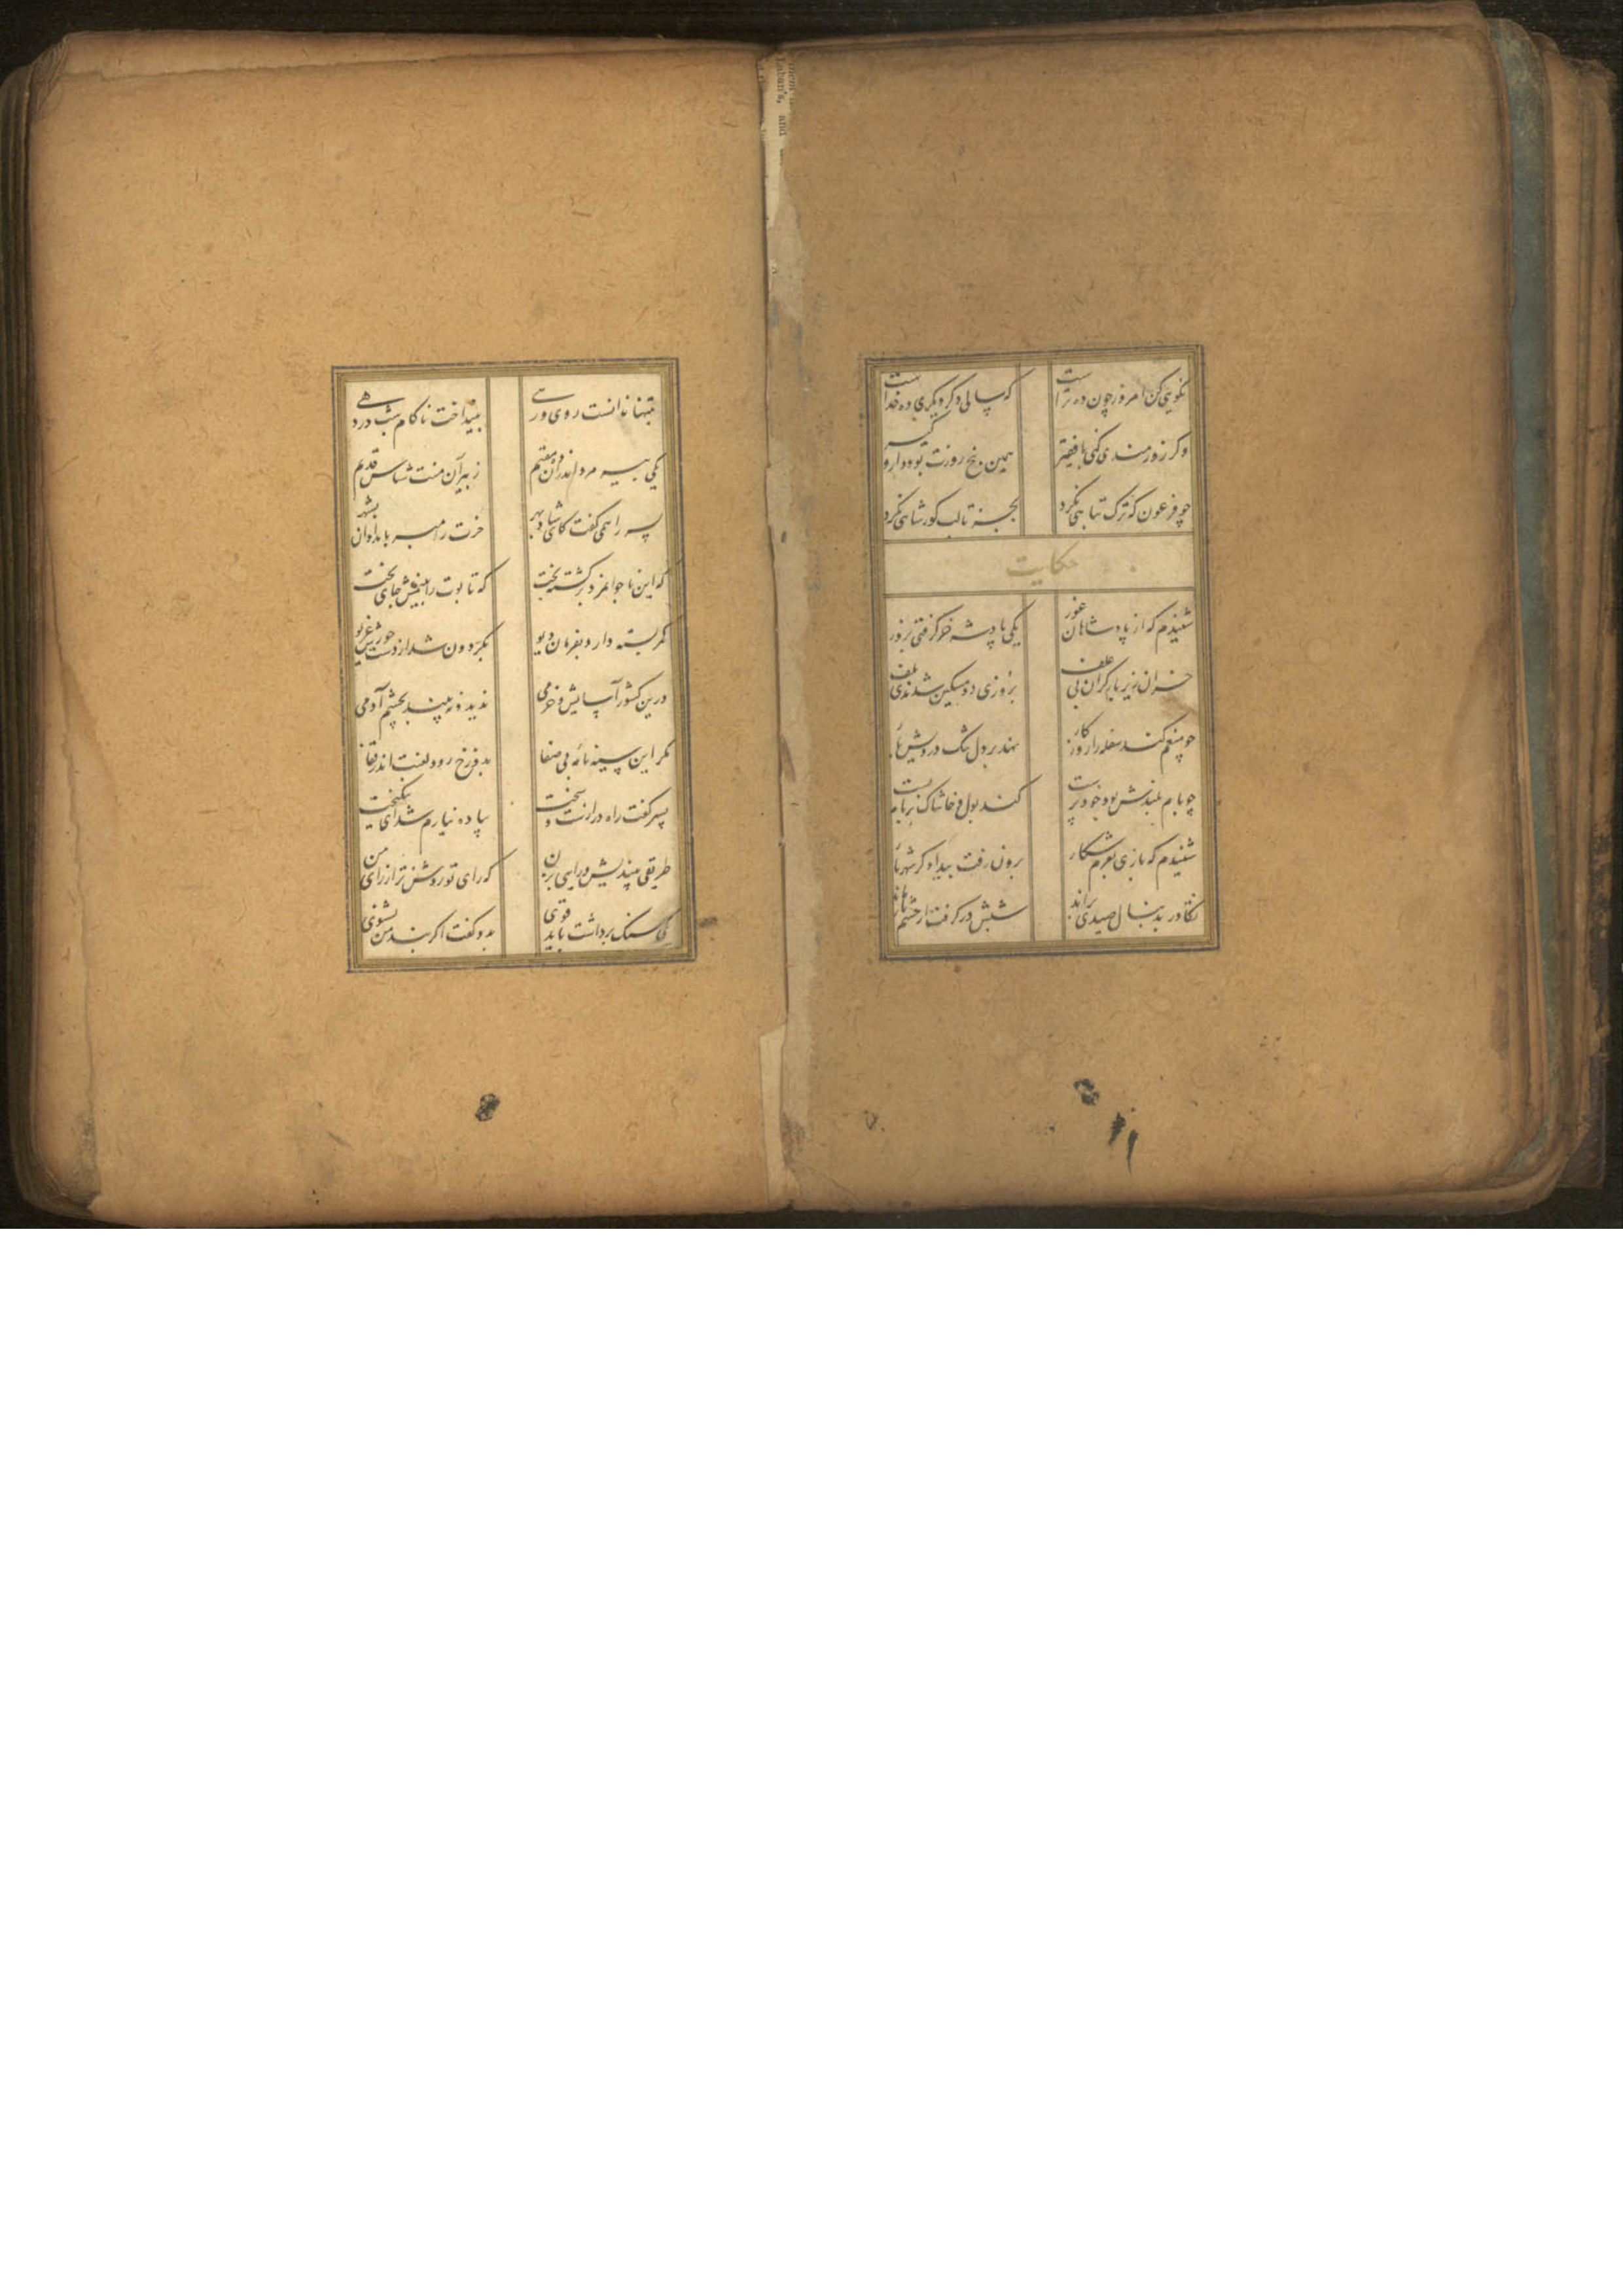 نکویی کن امروز چون ده تراست
که سالی دگر دیگری ده خداست
وگر زورمندی کنی با فقیر
همین پنج روزت بود دار و گیر
چو فرعون که ترک تباهی نکرد
بجز تا لب گور شاهی نکرد
حکایت
شنیدم که از پادشاهان غور
یکی پادشه خر گرفتی بزور
خران زیر بار گران بی علف
بروزی دو مسکین شدندی تلف
چو منعم کند سفله را روزکار
نهد بر دل تنک درویش بار
چو بام بلندش بود خودپرست
کند بول و خاشاک بر بام پست
شنیدم که باری بعزم شکار
برون رفت بیدادگر شهریار
تکاور بدنبال صیدی براند
شبش درگرفت از حشم باز ماند
بتنها ندانست روی و رهی
بینداخت ناکام شب در دهی
یکی پیر مرد اندران ده مقیم
ز پیران منت شناس قدیم
پسر را همی گفت کای شاد بهر
خرت را مبر بامدادان بشهر
که این ناجوانمرد برگشته بخت
که تابوت را بینمش جای تخت
کمر بسته دارد بفرمان دیو
بکردون شد از دست جورش غریو
درین کشور آسایش و خرمی
ندید و نبیند بچشم آدمی
مگر این سیه نامه بی صفا
بدوزخ رود لعنت اندر قفا
پسر گفت راه درازست و سخت
پیاده نیارم شد ای نیکبخت
طریقی بیندیش و رایی بزن
که رای تو روشن تر از رای من
بدو گفت اگر پند من بشنوی
یکی سنگ برداشت باید قوی